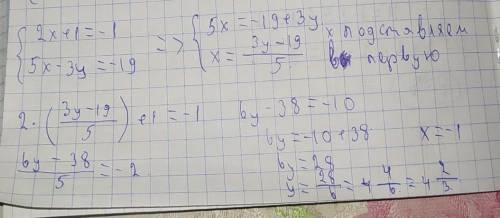 { 2x+1=-1
5x-3y=-19
=> { 5x=-19+3y
x = (3y-19)/5
x подставляем
в первую
2·((3y-19)/5)+1=-1
(6y-38)/5=-2
6y-38=-10
6y=-10+38
6y=28
y=28/6=4 4/6=4 2/3
x=-1